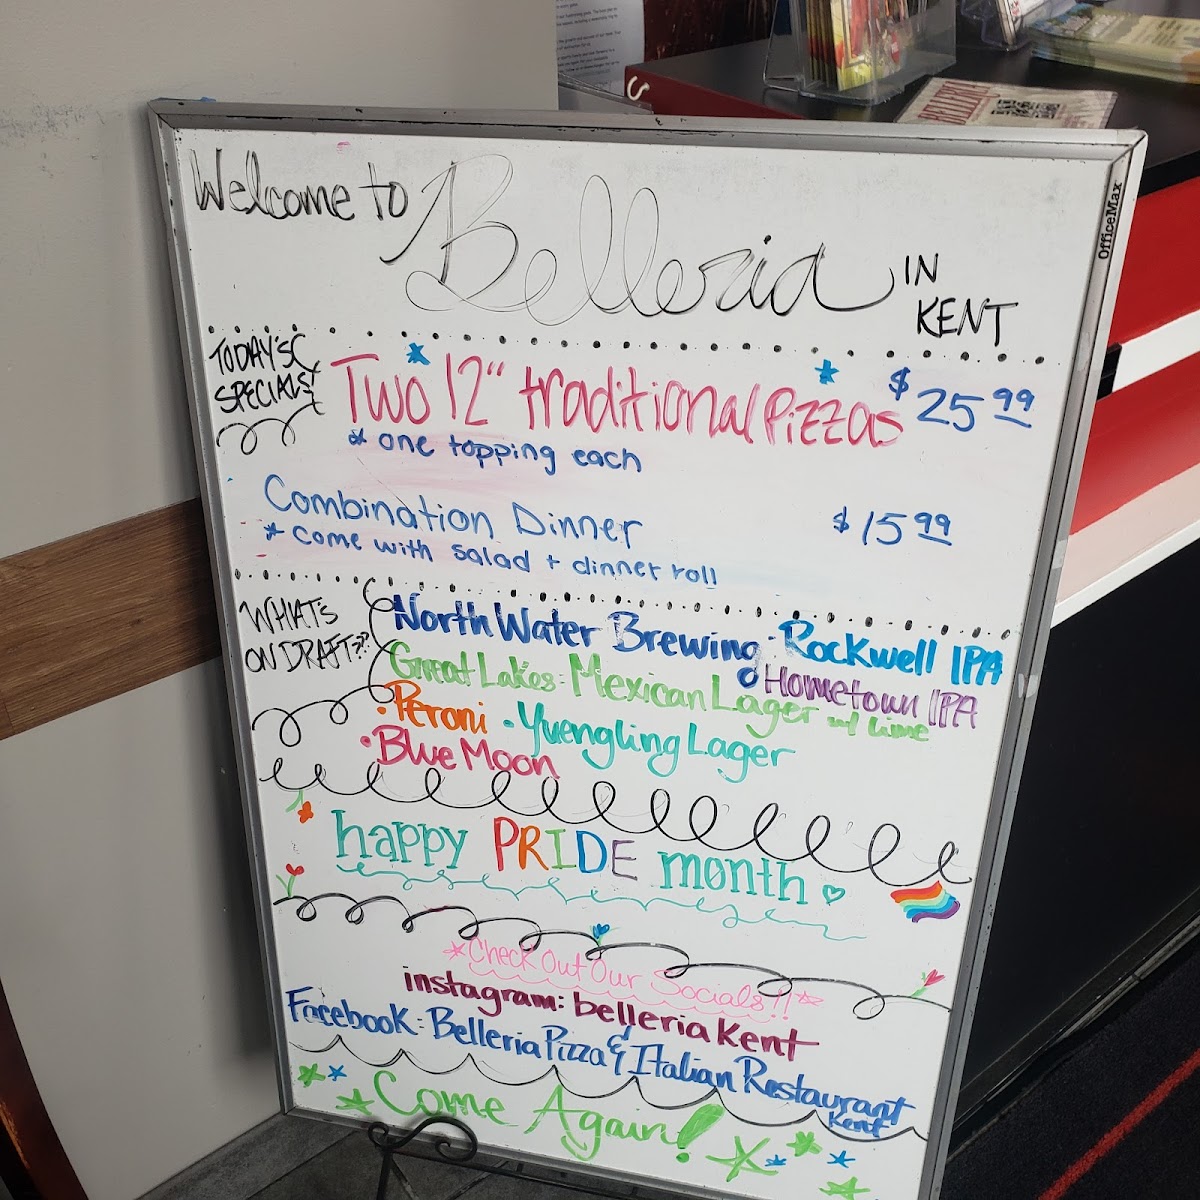 Welcome to Belleria IN KENT
OfficeMax
BELLERIA
TODAY'S SPECIALS!
Two 12" traditional Pizzas $25.99
* one topping each
Combination Dinner $15.99
* Come with salad + dinner roll
WHAT'S ON DRAFT??
North Water Brewing: Rockwell IPA
& Hometown IPA
Great Lakes: Mexican Lager w/ Lime
• Peroni • Yuengling Lager
• Blue Moon
happy PRIDE month
*Check Out Our Socials!!*
instagram: belleria Kent
Facebook: Belleria Pizza & Italian Restaurant Kent
Come Again!